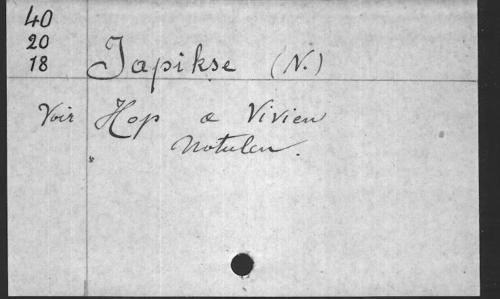 40
20
18
Japikse (N.)
Voir Hop & Vivien
Notulen.